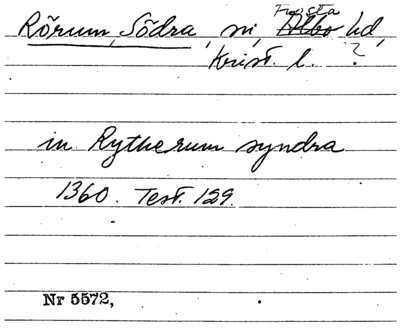 Rörum, Södra, sn, Frosta Albo hd,
Krist. l. ?
in Rytherum syndra
1360. Test. 129.
Nr 5572,